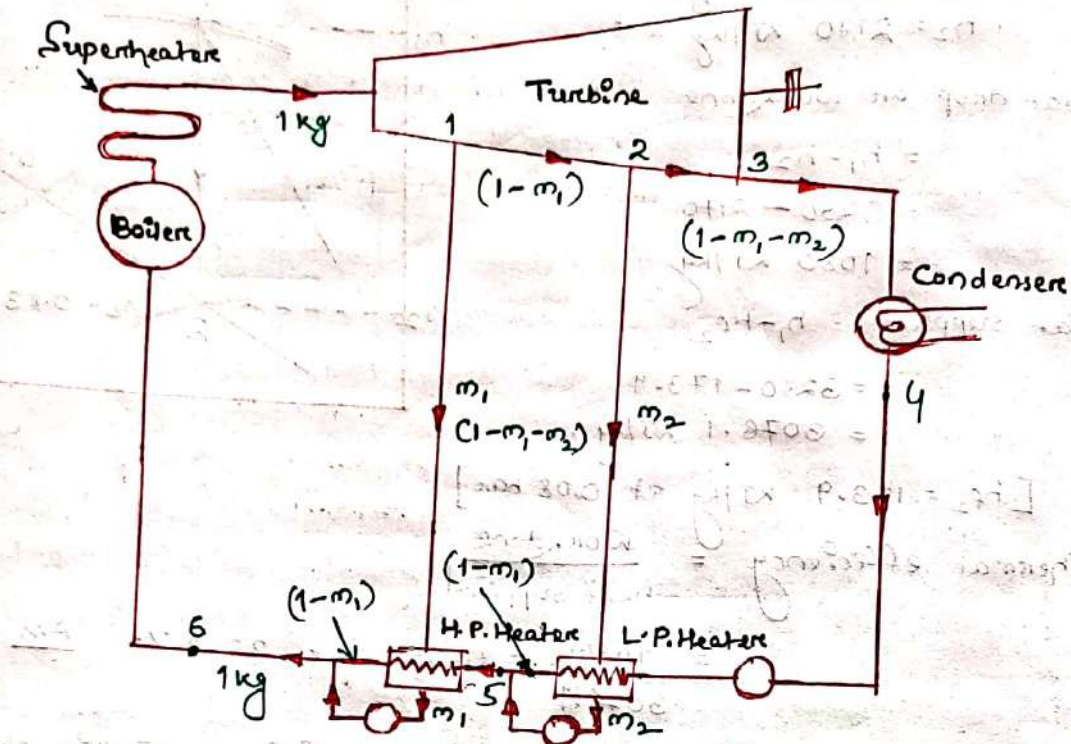 Superheatere
Turbine
1 kg
1
2
3
(1-m₁)
Boilere
(1-m₁-m₂)
Condensere
m₁
(1-m₁-m₂)
m₂
4
(1-m₁)
(1-m₁)
6
H.P. Heatere
L.P. Heatere
1 kg
5
m₁
m₂